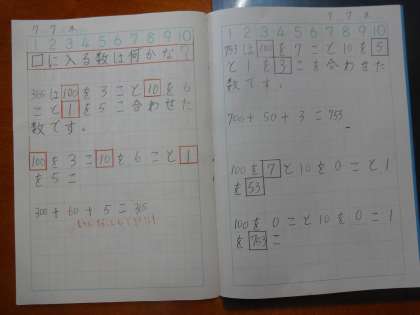 7 7 水
1 2 3 4 5 6 7 8 9 10
□に入る数は何かな?
365は100を3こと10を6
こと1を5こ合わせた
数です。
100を3こ10を6こと1
を5こ
300+60+5=365
7 7 水
1 2 3 4 5 6 7 8 9 10
753は100を7こと10を5こ
と1を3こを合わせた
数です。
700+50+3=753
100を7と10を0こと1
を53
100を0こと10を0こ1
を753こ